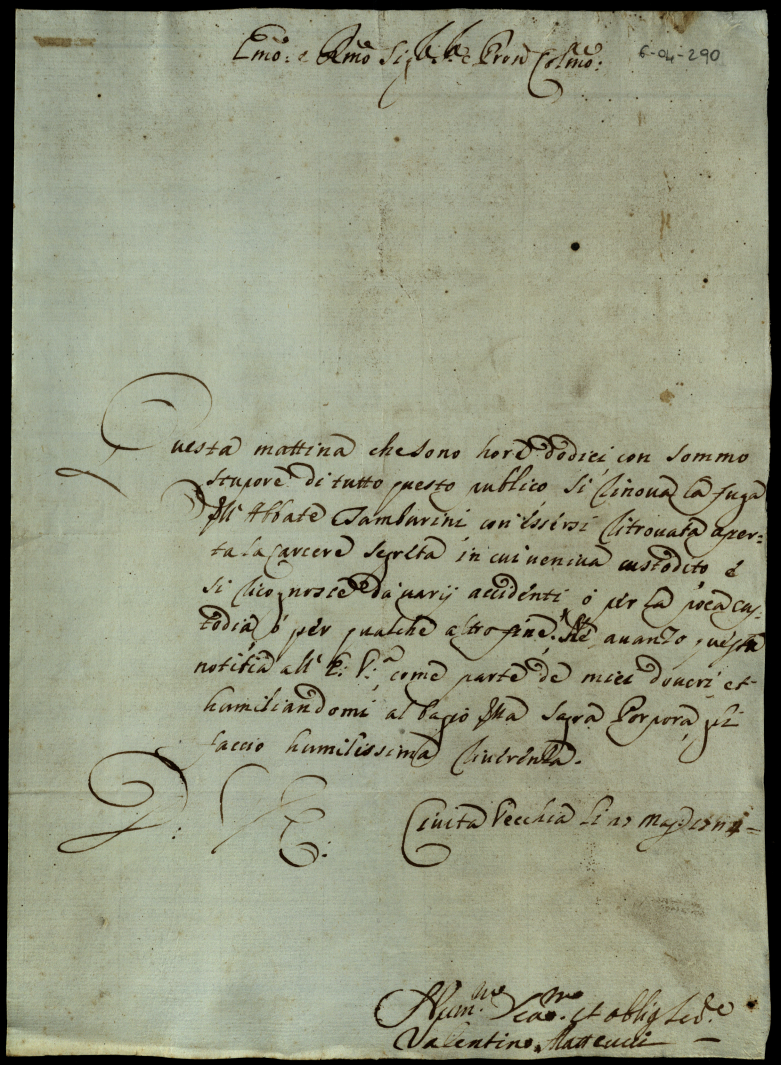 Emo: e Rmo Sig.r Pron Colmo: 6-04-290
Questa mattina che sono hore dodici con sommo
stupore di tutto questo publico si rinova la fuga
dell' Abbate Tamburini con essersi ritrovata aper=
ta la carcere segreta in cui veniva custodito e
si riconosce da varij accidenti ó per la poca cus
todia ó per qualche altro fine. Ne avanzo questa
notitia all' E: V:a come parte de miei doveri et
humiliandomi al bacio della Sagra Porpora gli
faccio humilissima riverenza.
D: V: E: Civita Vecchia li
Hum.mo et oblig Ser.e
Valentino Matteucci